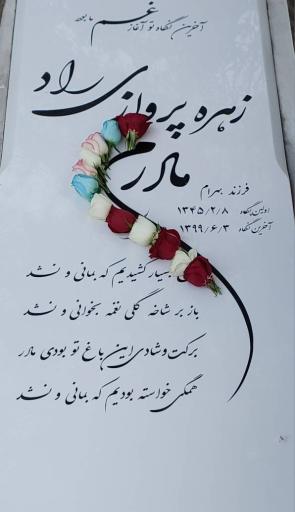 آخرین نگاه تو آغاز غم ما بود
زهره پروازی راد
مادرم
فرزند بهرام
اولین نگاه ۱۳۴۵/۲/۸
آخرین نگاه ۱۳۹۹/۶/۳
بسیار کشیدیم که بمانی و نشد
باز بر شاخه گلی نغمه بخوانی و نشد
برکت و شادی این باغ تو بودی مادر
همگی خواسته بودیم که بمانی و نشد